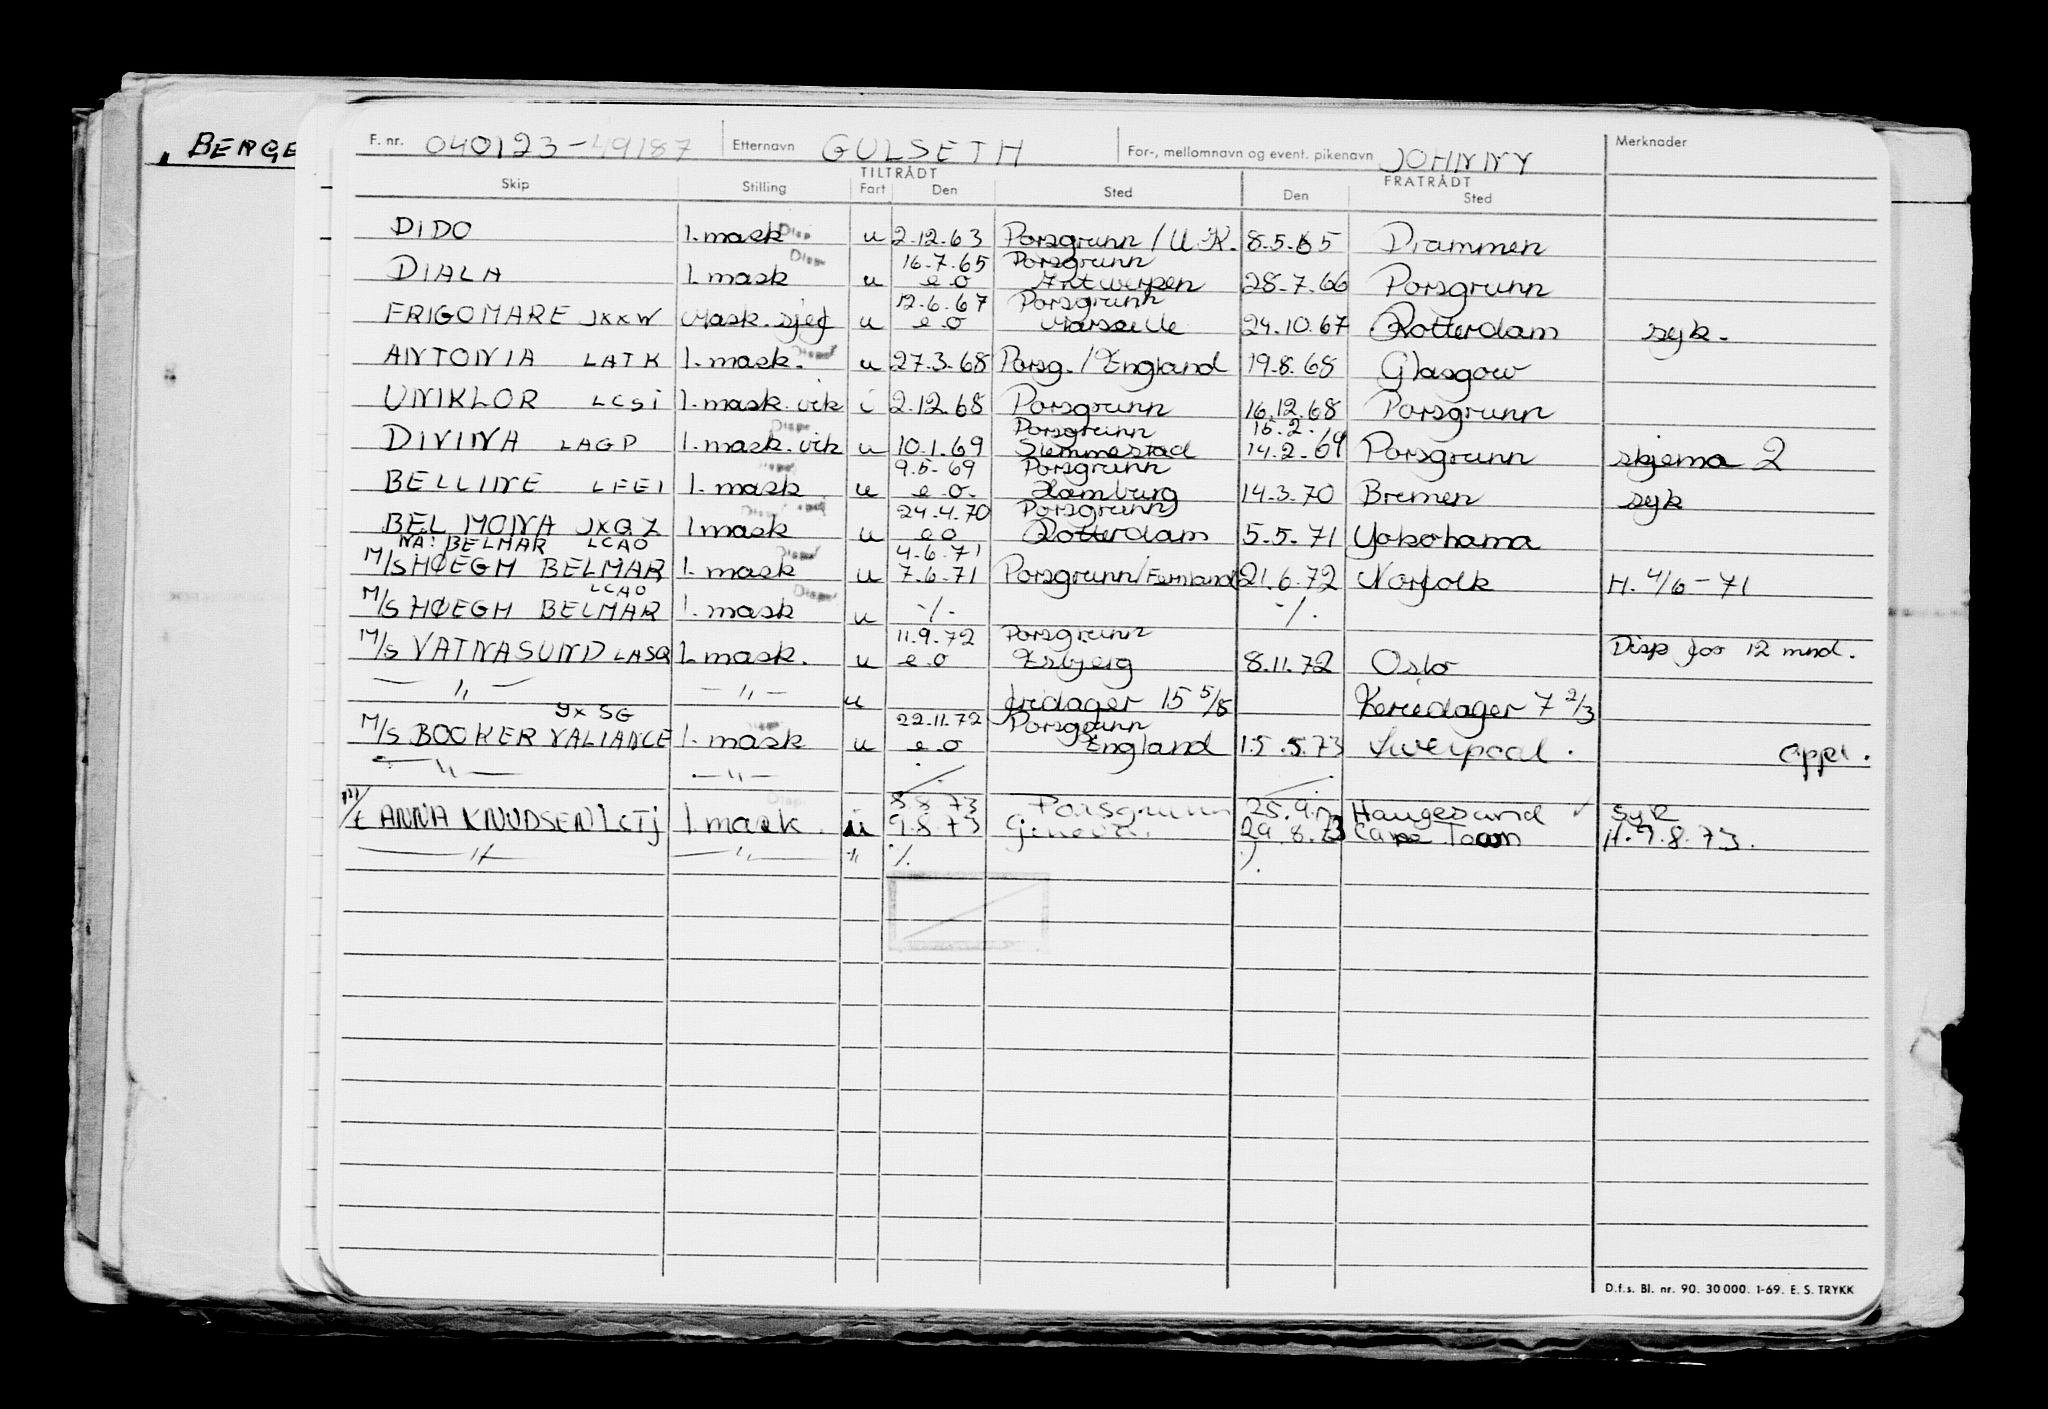 BERGE
F. nr. 040123-49187 Etternavn GULSETH For-, mellomnavn og event. pikenavn JOHNNY Merknader
TILTRÅDT FRATRÅDT
Skip Stilling Fart Den Sted Den Sted
DIDO 1. mask Disp u 2.12.63 Porsgrunn / U.K. 8.5.65 Drammen
Disp 16.7.65 Porsgrunn
DIALA 1. mask u e o Antwerpen 28.7.66 Porsgrunn
12.6.67 Porsgrunn
FRIGOMARE JXXW Mask.sjef u e o Marseille 24.10.67 Rotterdam syk.
ANTONIA LATK 1. mask. Disp u 27.3.68 Porsg. / England 19.8.68 Glasgow
UNIKLOR LCSI 1. mask. vik i 2.12.68 Porsgrunn 16.12.68 Porsgrunn
Disp Porsgrunn 15.2.
DIVINA LAGP 1. mask. vik u 10.1.69 Slemmestad 14.2.69 Porsgrunn skjema 2
9.5.69 Porsgrunn
BELLINE LEEI 1. mask u e o. Hamburg 14.3.70 Bremen syk
24.4.70 Porsgrunn
BEL MONA JXQZ 1 mask u e o Rotterdam 5.5.71 Yokohama
NÅ: BELMAR LCAO Disp 4.6.71
M/S HØEGH BELMAR 1. mask u 7.6.71 Porsgrunn/ 21.6.72 Norfolk H. 4/6-71
LCAO Disp
M/S HØEGH BELMAR 1. mask u -/- -/-
11.9.72 Porsgrunn
M/S VATNASUND LASQ 1. mask. u e o Esbjerg 8.11.72 Oslo Disp for 12 mnd.
— " — — " — u fridager 15 5/8 Feriedager 7 2/3
9XSG 22.11.72 Porsgrunn
M/S BOOKER VALIANCE 1. mask u e o England 15.5.73 Liverpool. oppl.
— " — — " — ·/· ·/·
Disp 8.8.73 Porsgrunn 25.9. Haugesund syk
M/T ANNA KNUDSEN LCTJ 1. mask. u 9.8.73 Genova. 29.8.73 Cape Town H. 9.8.73.
— " — — " — " ·/· ·/·
D.f.s. Bl. nr. 90. 30 000. 1-69. E. S. TRYKK